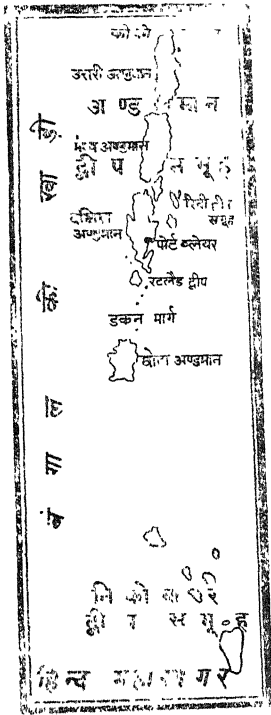 उत्तरी अण्डमान
अण्डमान
मध्य अण्डमान
द्वीप समूह
दक्षिण अण्डमान
पोर्ट ब्लेयर
रटलैंड द्वीप
डंकन मार्ग
छोटा अण्डमान
बंगाल की खाड़ी
निकोबार
द्वीप समूह
हिन्द महासागर